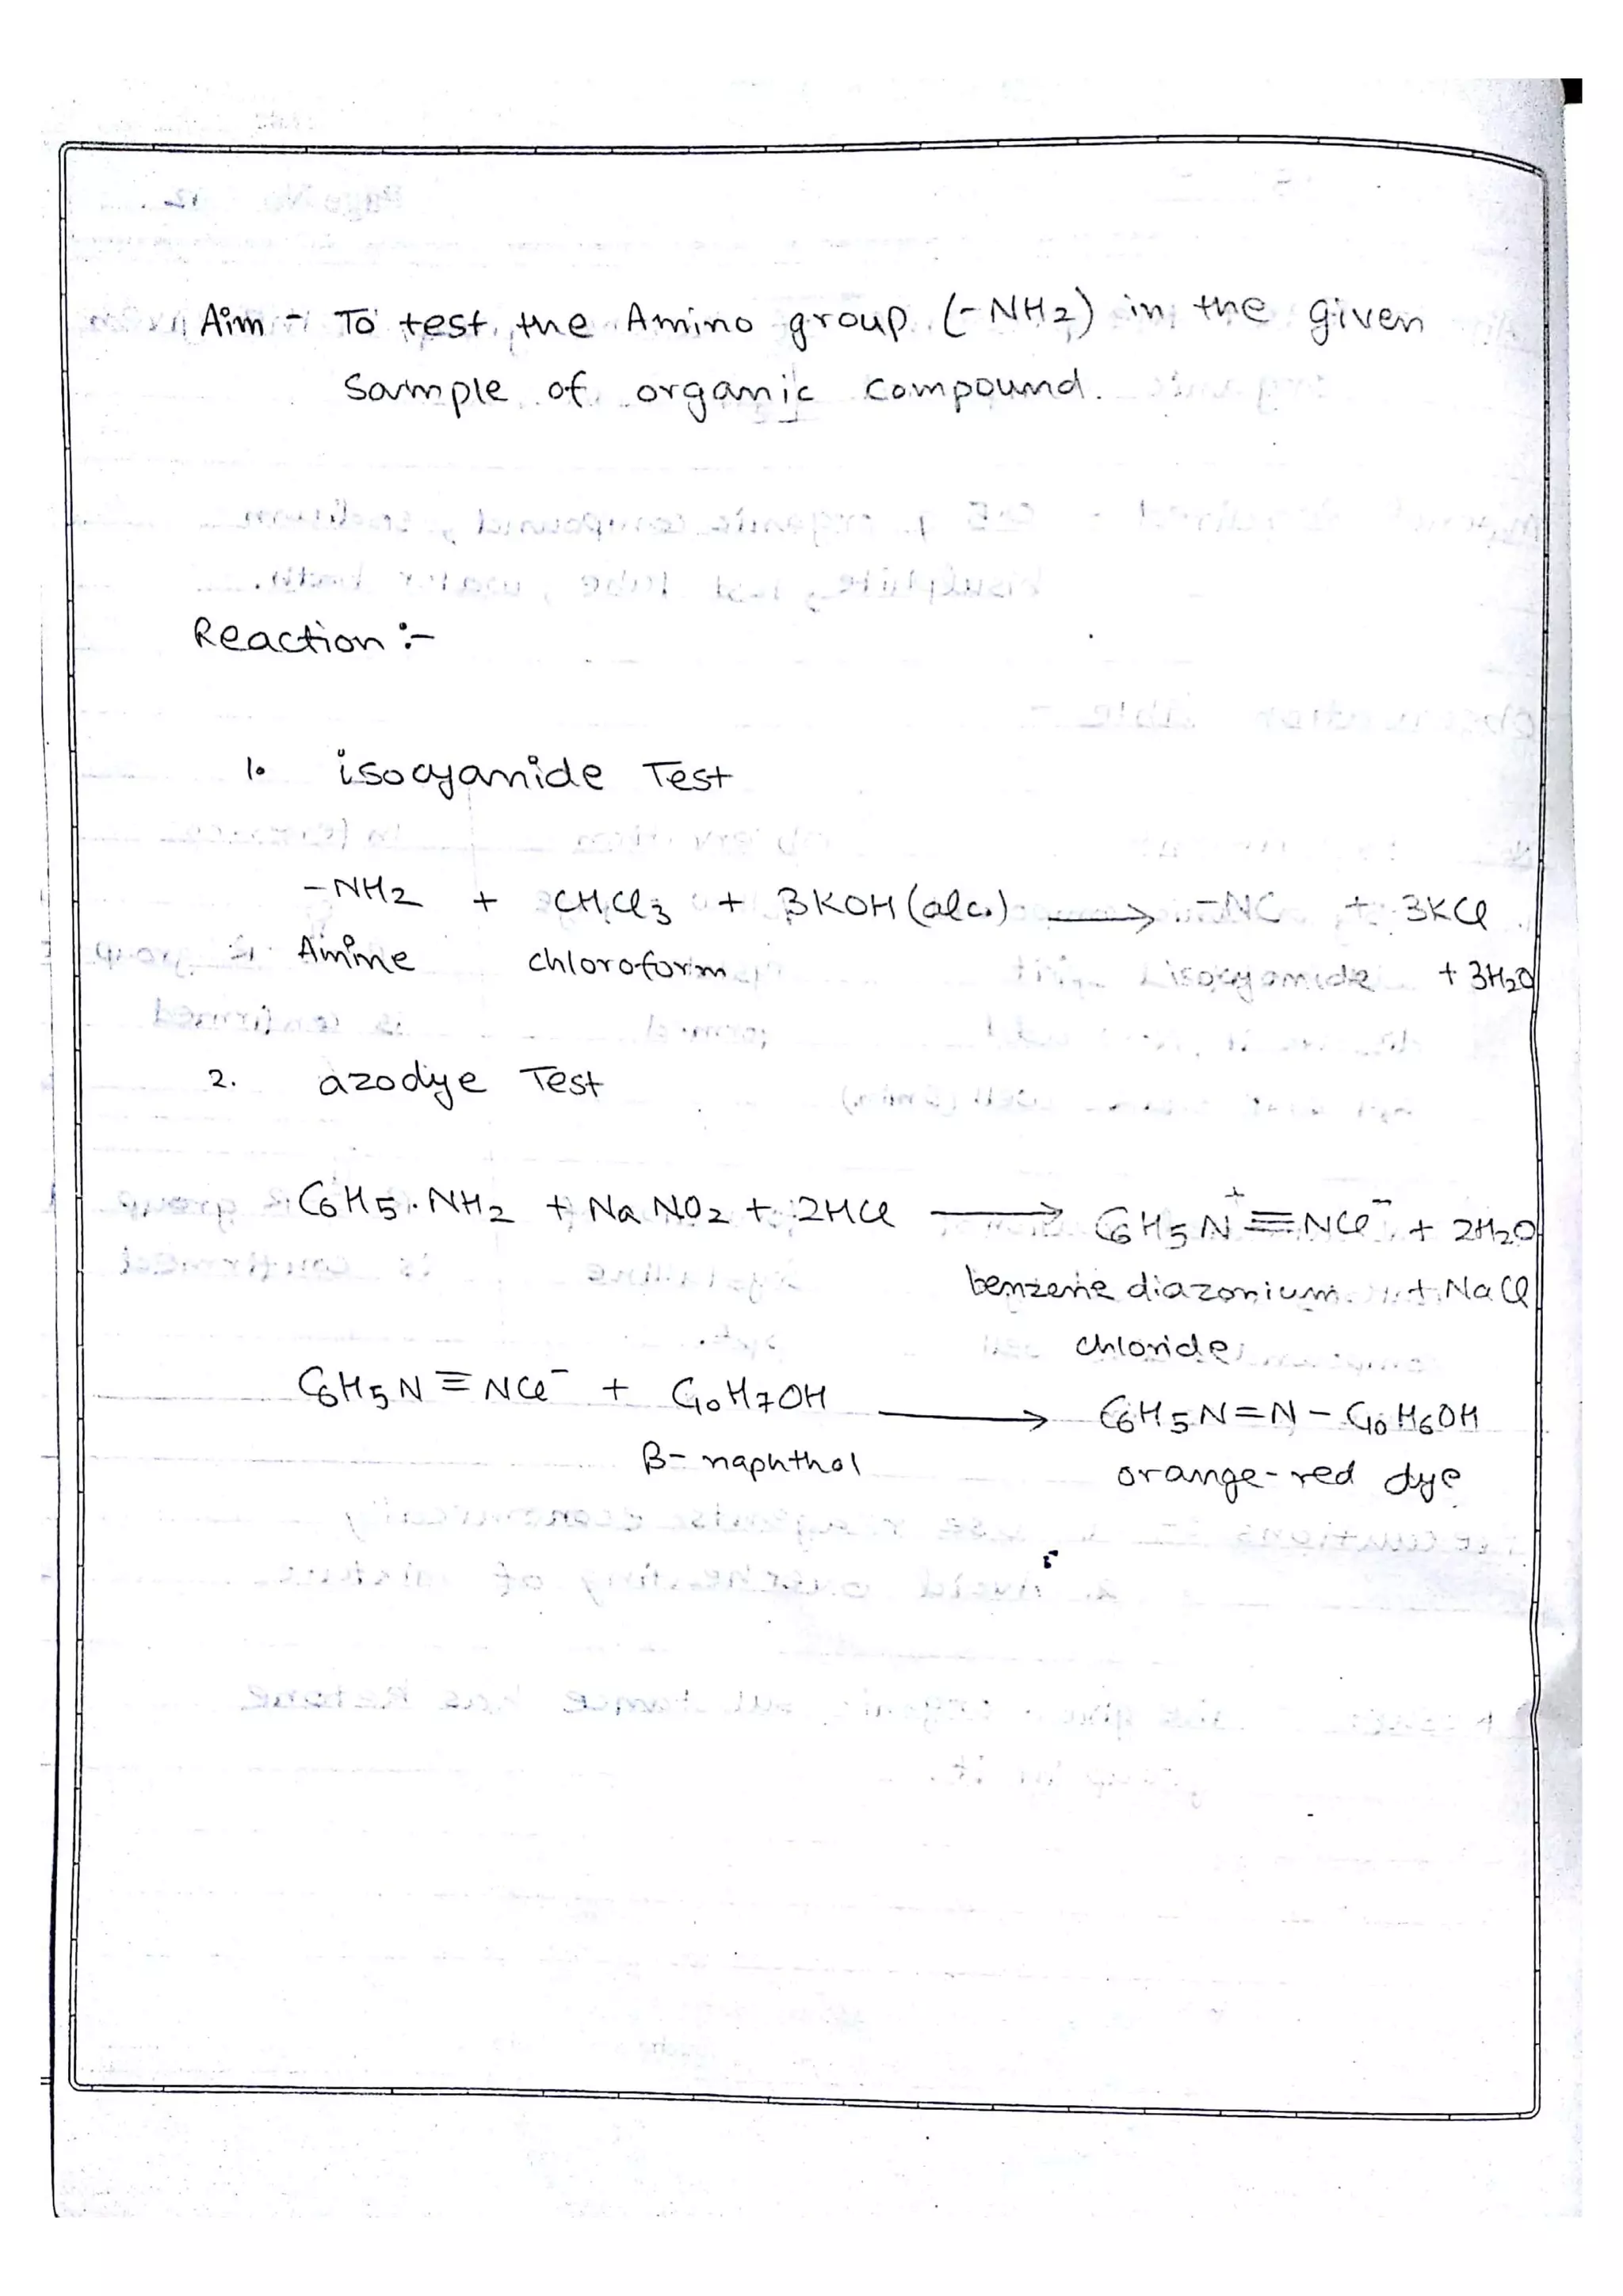 Aim - To test the Amino group (-NH2) in the given
sample of organic compound.
Reaction :-
1. isocyanide Test
-NH2 + CHCl3 + 3KOH (alc.) → -NC + 3KCl
Amine chloroform isocyanide + 3H2O
2. azodye Test
C6H5.NH2 + NaNO2 + 2HCl → C6H5N⁺≡NCl⁻ + 2H2O
benzene diazonium + NaCl
chloride
C6H5N≡NCl⁻ + C10H7OH → C6H5N=N-C10H6OH
β-naphthol orange-red dye